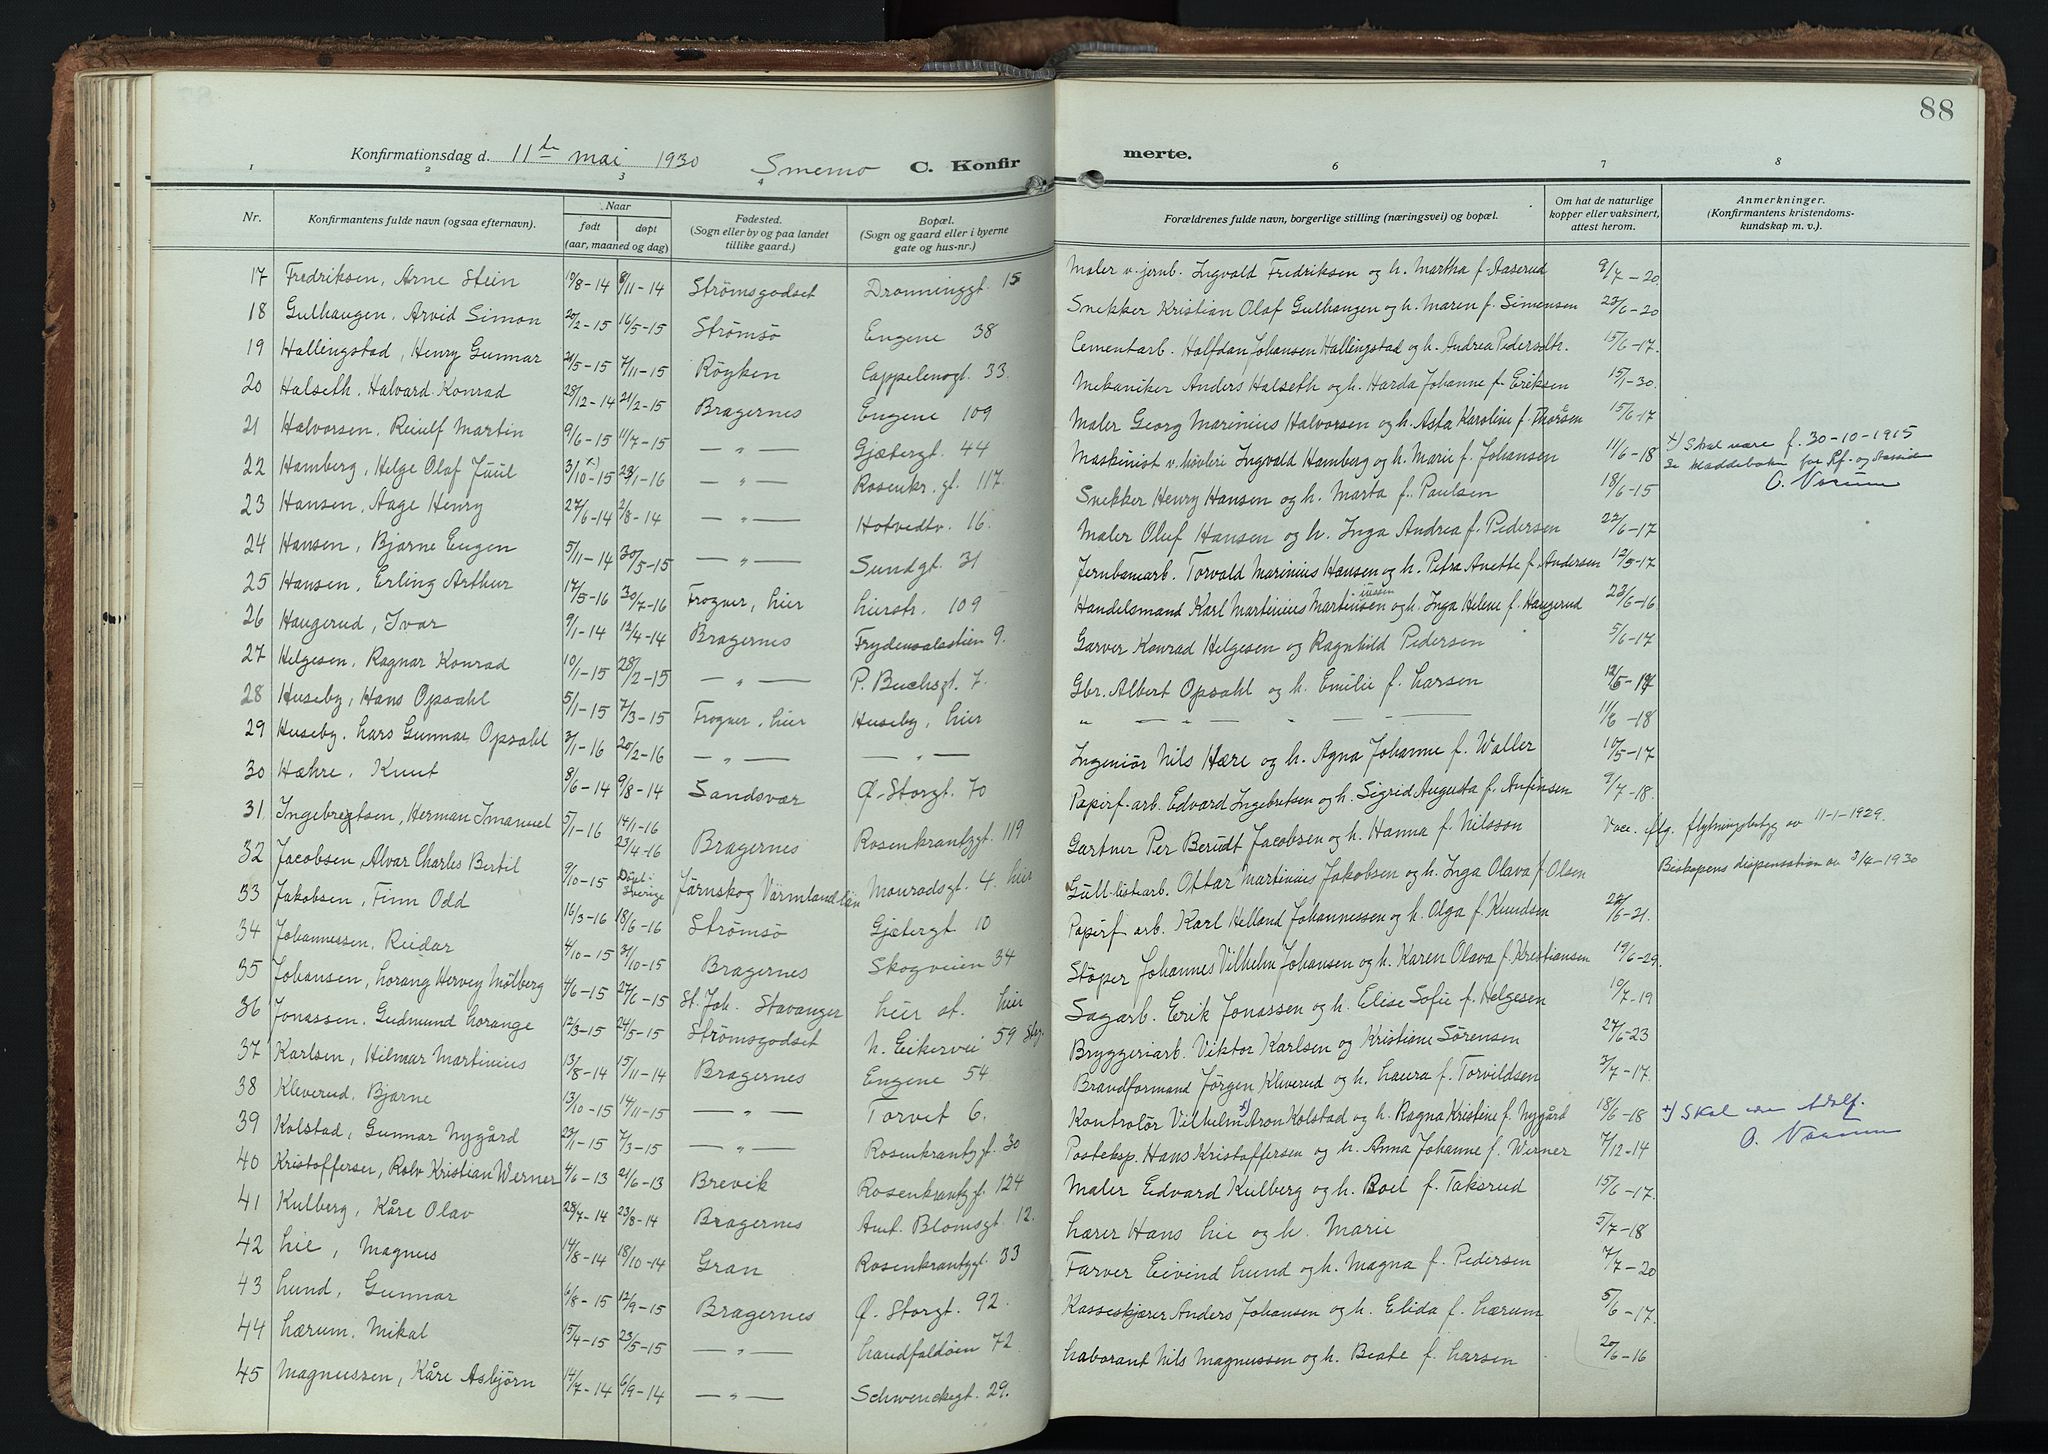 88
Konfirmationsdag d. 11te mai 1930 C. Konfir merte.
1 2 3 4 6 7 8
Nr.
Konfirmantens fulde navn (ogsaa efternavn).
Naar
født døpt
(aar, maaned og dag)
Fødested.
(Sogn eller by og paa landet
tillike gaard.)
Bopæl.
(Sogn og gaard eller i byerne
gate og hus-nr.)
Forældrenes fulde navn, borgerlige stilling (næringsvei) og bopæl.
Om hat de naturlige
kopper eller vaksinert,
attest herom.
Anmerkninger.
(Konfirmantens kristendoms-
kundskap m. v.).
17 Fredriksen, Arne Stein 19/8-14 8/11-14 Strømsgodset Dronninggt. 15 Maler v. jernb. Ingvald Fredriksen og h. Martha f. Aaserud 9/7-20
18 Gulhaugen, Arvid Simon 20/2-15 16/5-15 Strømsø Engene 38 Snekker Kristian Olaf Gulhaugen og h. Maren f. Simensen 23/6-20
19 Hallingstad, Henry Gunnar 21/5-15 7/11-15 Røyken Cappelensgt. 33 Cementarb. Halfdan Johansen Hallingstad og h. Andrea Pedersdtr. 15/6-17
20 Halseth, Halvard Konrad 28/12-14 21/2-15 Bragernes Engene 109 Mekaniker Anders Halseth og h. Harda Johanne f. Eriksen 15/1-30
21 Halvorsen, Reiulf Martin 9/6-15 11/7-15 — " — Gjætergt. 44 Maler Georg Marinius Halvorsen og h. Asta Karoline f. Thorsen 15/6-17
22 Hamberg, Helge Olaf Juul 3/10-15 x) 23/1-16 — " — Rosenkr. gt. 117 Maskinist v. høvleri Ingvald Hamberg og h. Marie f. Johansen 11/6-18 x) Skal være f. 30-10-1915
se kladdeboken for
23 Hansen, Aage Henry 27/6-14 2/8-14 — " — Hotvedtv. 16 Snekker Henry Hansen og h. Marta f. Paulsen 18/6-15
24 Hansen, Bjarne Eugen 5/11-14 30/5-15 — " — Sundgt. 31 Maler Oluf Hansen og h. Inga Andrea f. Pedersen 22/6-17
25 Hansen, Erling Arthur 17/5-16 30/7-16 Frogner, Lier Lierstr. 109 Jernbanearb. Torvald Marinius Hansen og h. Petra Anette f. Andersen 12/5-17
26 Haugerud, Ivar 9/1-14 12/4-14 Bragernes Frydensalsstien 9. Handelsmand Karl Martinius Martinsen og h. Inga Helene f. Haugerud 23/6-16
27 Helgesen, Ragnar Konrad 10/1-15 28/2-15 — " — P. Buchsgt. 7. Garver Konrad Helgesen og Ragnhild Pedersen 5/6-17
28 Huseby, Hans Opsahl 5/1-15 7/3-15 Frogner, Lier Huseby, Lier Gbr. Albert Opsahl og h. Emilie f. Larsen
29 Huseby, Lars Gunnar Opsahl 3/1-16 20/2-16 — " — — " — " — " — " — 11/6-18
30 Hæhre, Knut 8/6-14 9/8-14 Sandsvær Ø. Storgt. 70 Ingeniør Nils Hære og h. Agna Johanne f. Waller 10/5-17
31 Ingebretsen, Herman Imanuel 5/1-16 23/4-16 Bragernes Rosenkrantzgt. 119 Papirf. arb. Edvard Ingebretsen og h. Sigrid Augusta f. Anfinsen 9/7-18
32 Jacobsen Alvar Charles Bertil 9/10-15 Døpt i Sverige Järnskog Värmland län Monradsgt. 4. hier Gartner Per Berndt Jacobsen og h. Hanna f. Nilsson Vacc. iflg. flytningsbetyg av 11-1-1929.
33 Jakobsen, Finn Odd 16/3-16 18/6-16 Strømsø Gjætergt 10 Gull-listarb. Ottar Martinius Jakobsen og h. Inga Olava f. Olsen Biskopens dispensation av 3/4-1930
34 Johannessen, Reidar 4/10-15 31/10-15 Bragernes Skogveien 34 Papirf. arb. Karl Helland Johannessen og h. Olga f. Knudsen
35 Johansen, Lorang Hervey Mølberg 4/6-15 27/6-15 St. Joh. Stavanger Lier st. Lier Støper Johannes Vilhelm Johansen og h. Karen Olava f. Kristiansen 19/6-29
36 Jonassen, Gudmund Lorange 12/3-15 24/5-15 Strømsgodset N. Eikervei 59 Sagarb. Erik Jonassen og h. Elise Sofie f. Helgesen 10/7-19
37 Karlsen, Hilmar Martinius 13/8-14 15/11-14 Bragernes Engene 54 Bryggeriarb. Viktor Karlsen og Kristiane Sørensen 27/6-23
38 Kleverud, Bjarne 13/10-15 14/11-15 — " — Torvet 6. Brandformand Jørgen Kleverud og h. Laura f. Torvildsen 3/7-17
39 Kolstad, Gunnar Nygård 23/1-15 7/3-15 — " — Rosenkrantzgt. 30 Kontrolør Vilhelm Aron Kolstad og h. Ragna Kristine f. Nygård 18/6-18 x) Skal være Adolf.
40 Kristoffersen, Rolv Kristian Werner 4/6-13 21/6-13 Brevik Rosenkrantzgt. 124 Posteksp. Hans Kristoffersen og h. Anna Johanne f. Werner 7/12-14
41 Kulberg, Kåre Olav 28/7-14 23/8-14 Bragernes Amt. Blomsgt. 12. Maler Edvard Kulberg og h. Boel f. Taksrud 15/6-17
42 Lie, Magnus 14/8-14 18/10-14 Gran Rosenkrantzgt. 33 Lærer Hans Lie og h. Marie 5/7-18
43 Lund, Gunnar 6/8-15 12/9-15 Bragernes Ø. Storgt. 92. Farver Eivind Lund og h. Magna f. Pedersen 7/7-20
44 Lærum, Mikal 15/4-15 23/5-15 — " — Landfaldøien 72 Kasseskjærer Anders Johansen og h. Elida f. Lærum 5/6-17
45 Magnussen, Kåre Asbjørn 14/7-14 6/9-14 — " — Schwenckegt. 29. Laborant Nils Magnussen og h. Beate f. Larsen 20/6-16